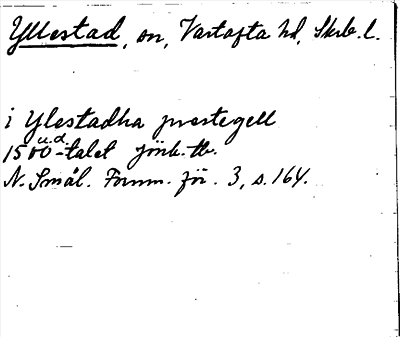 Yllestad, sn, Vartofta hd, Skrb. l.
i Ylestadha prestegell
u.d.
1500-talet jönk. tb.
N. Smål. Fornm. för. 3, s. 164.